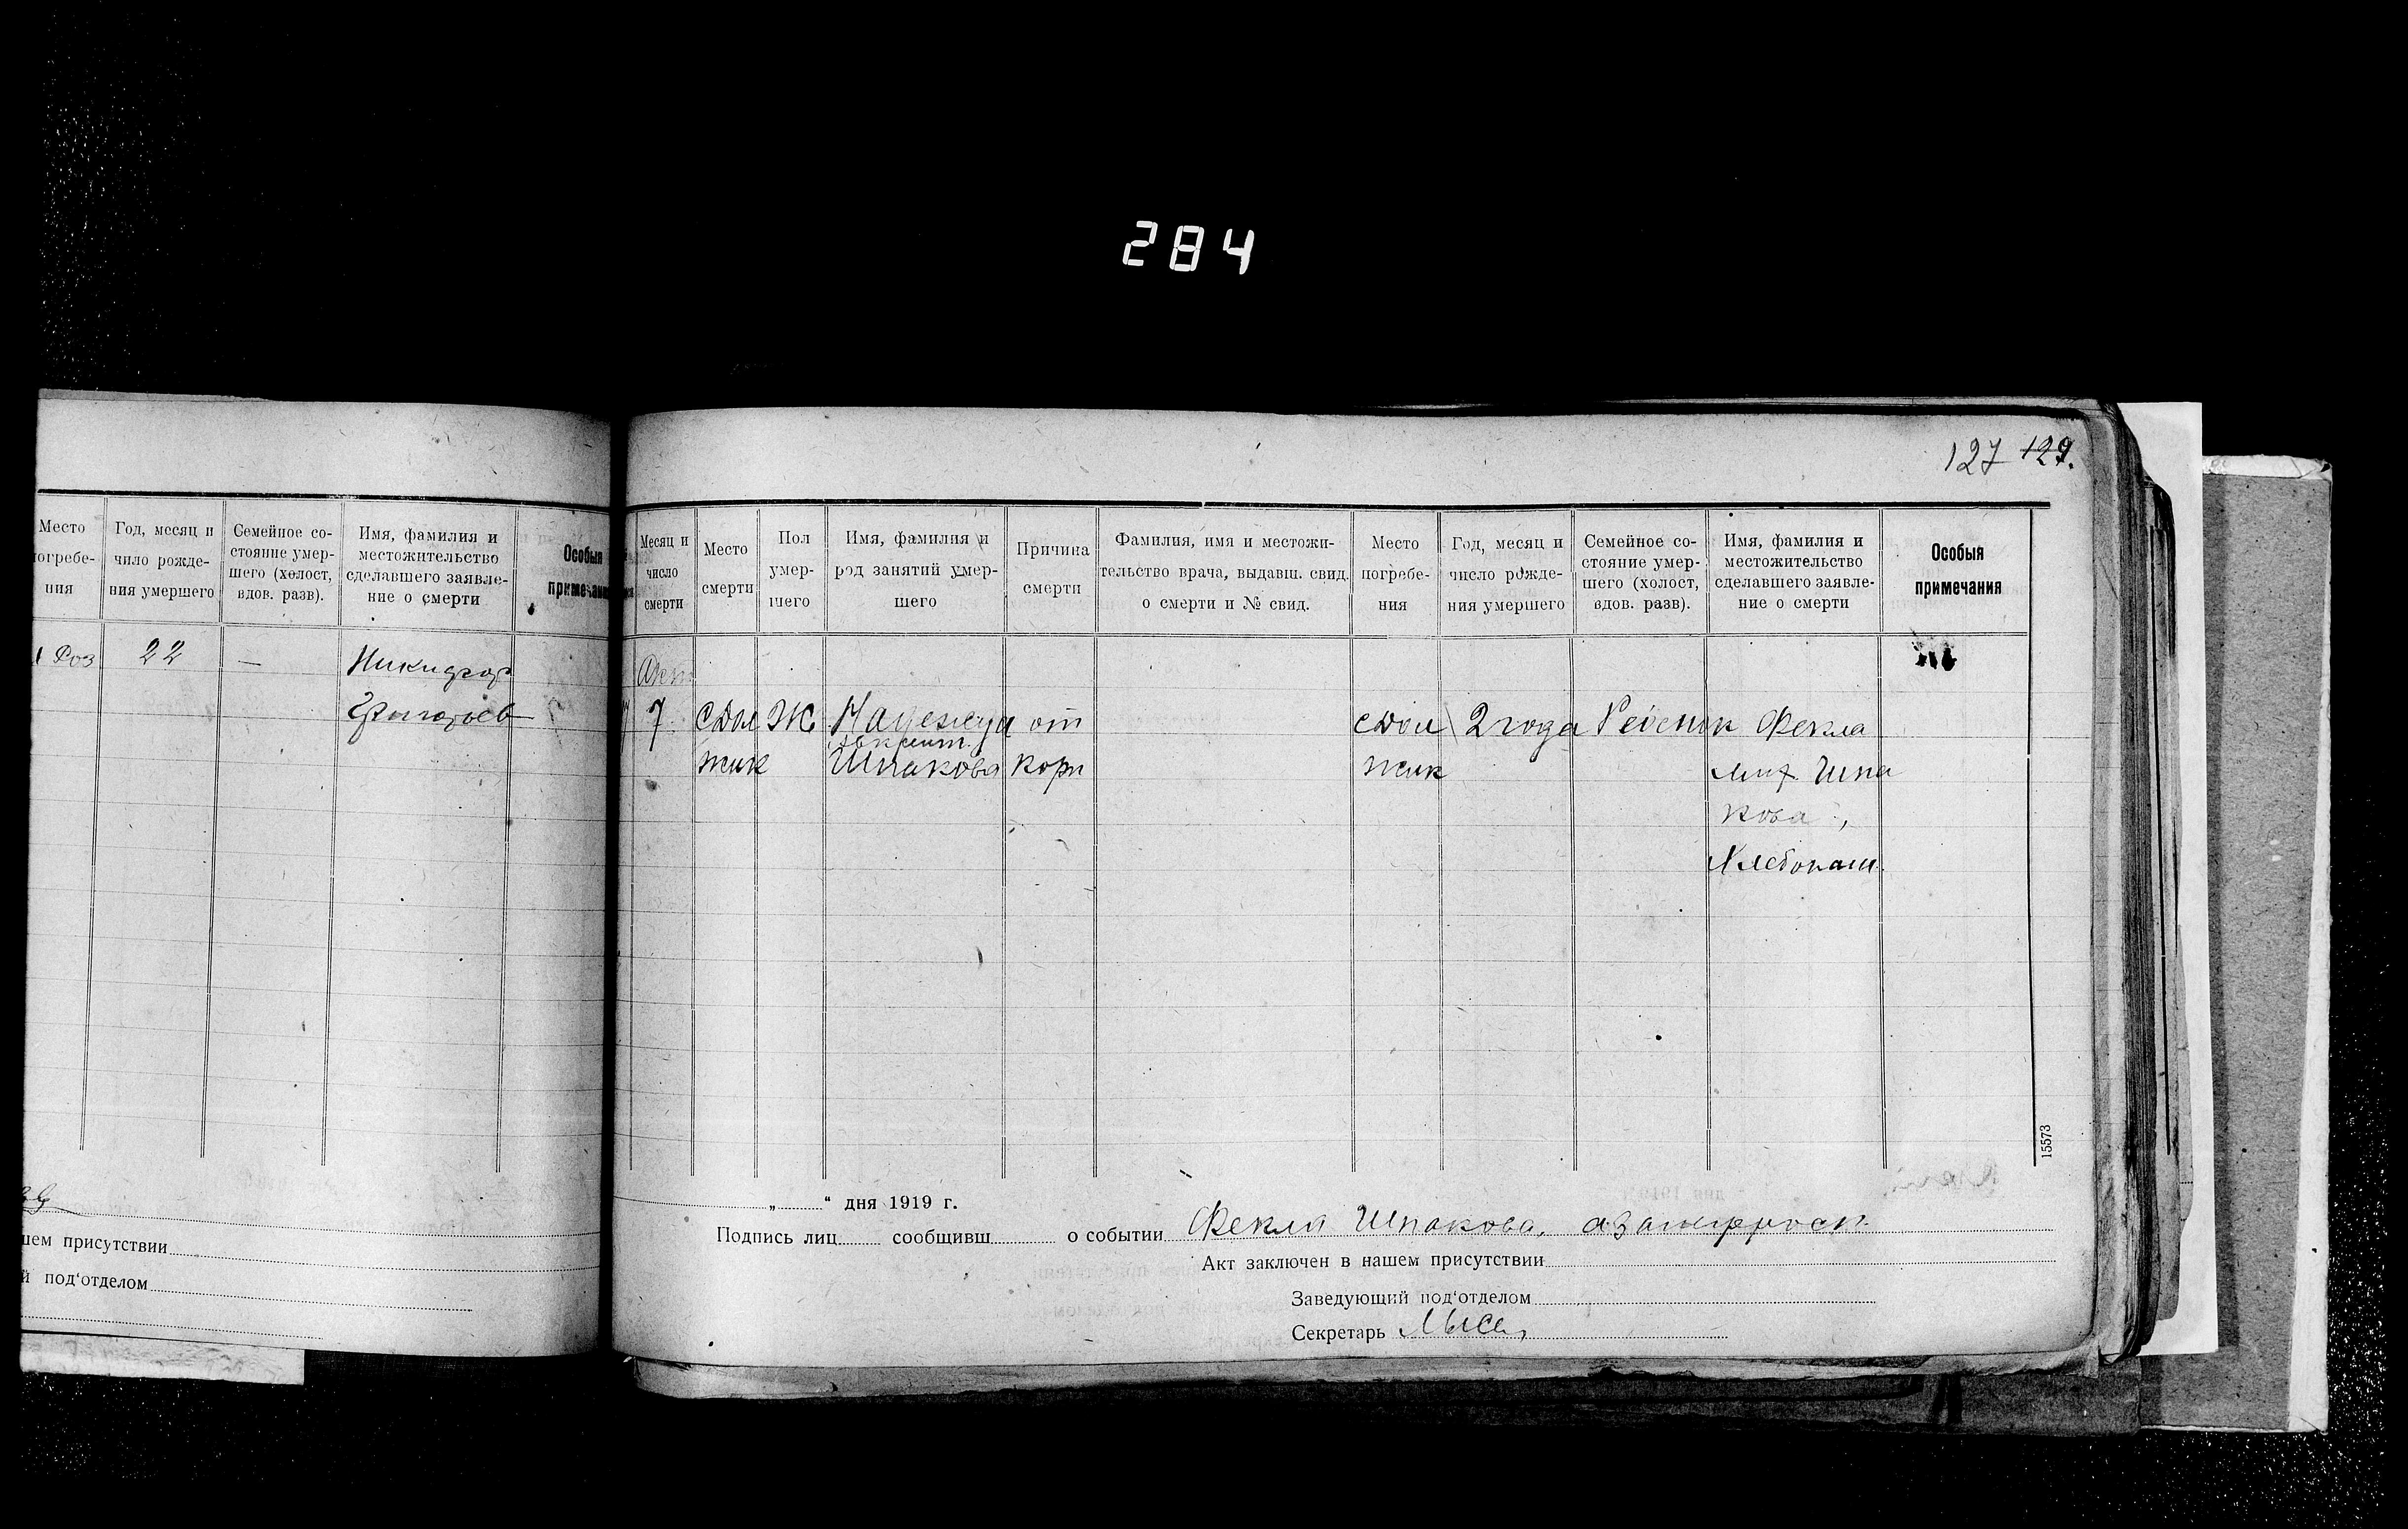 284
Место
погребе-
ния
Год, месяц и
чило рожде-
ния умершего
Семейное со-
стояние умер-
шего (холост,
вдов. разв).
Имя, фамилия и
местожительство
сделавшего заявле-
ние о смерти
Особыя
примечания
Роз
22
—
Никифор
Григорьев
шем присутствии
й под‘отделом
127 129.
Месяц и
число
смерти
Место
смерти
Пол
умер-
шего
Имя, фамилия и
род занятий умер-
шего
Причина
смерти
Фамилия, имя и местожи-
тельство врача, выдавш. свид.
о смерти и № свид.
Место
погребе-
ния
Год, месяц и
число рожде-
ния умершего
Семейное со-
стояние умер-
шего (холост,
вдов. разв).
Имя, фамилия и
местожительство
сделавшего заявле-
ние о смерти
Особыя
примечания
7
сДол
жик
Ж
Надежда
Шпакова
от
кори
сДол
жик
2 года
Ребенок
Фекла
Мих. Шпа
кова,
Хлебопаш.
15573
„ “ дня 1919 г.
Подпись лиц сообщивш о событии Фекла Шпакова,
Акт заключен в нашем присутствии
Заведующий под‘отделом
Секретарь